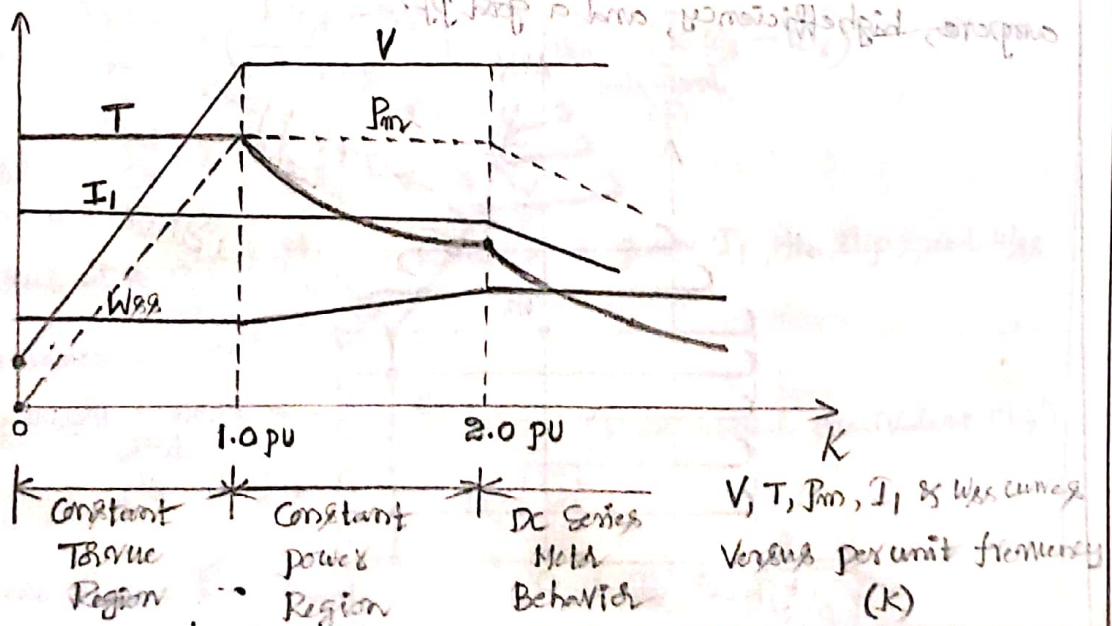 V
T
Pm
I1
Wsl
0
1.0 pu
2.0 pu
K
Constant
Torque
Region
Constant
power
Region
DC Series
Motor
Behavior
V, T, Pm, I1 & Wsl curves
Versus per unit frequency
(K)